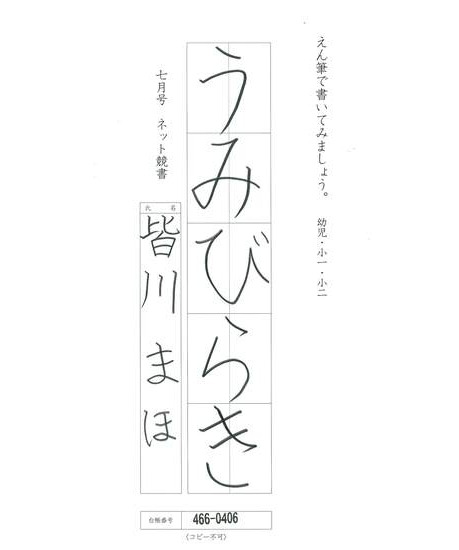 えん筆で書いてみましょう。　幼児・小一・小二
うみびらき
七月号　ネット競書
氏名
皆川まほ
台帳番号 466-0406
(コピー不可)